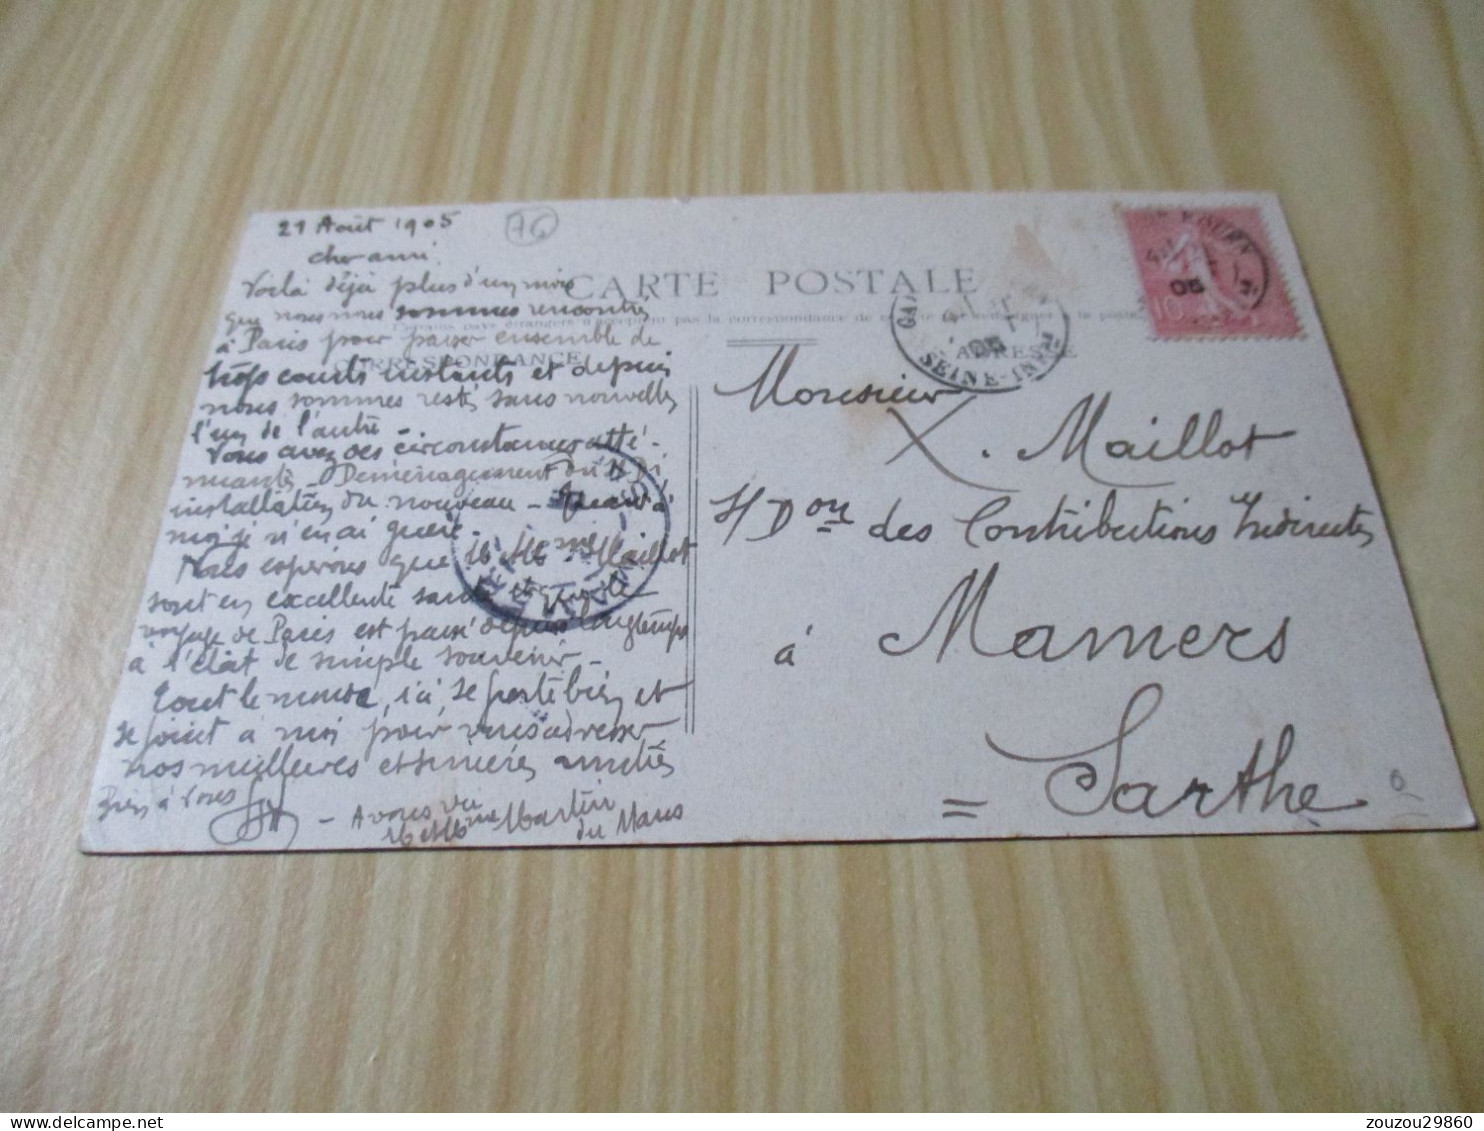 21 Août 1905
76
cher ami.
Voilà déjà plus d'un mois
que nous nous sommes rencontrés
à Paris pour passer ensemble de
trop courts instants et depuis
nous sommes restés sans nouvelles
l'un de l'autre -
Vous avez des circonstances atté-
nuantes - Déménagement du
installation du nouveau - Quant à
moi je n'en ai guère -
Nous espérons que Maillot
sont en excellente santé et que le
voyage de Paris est passé depuis longtemps
à l'état de simple souvenir -
Tout le monde, ici, se porte bien et
se joint à moi pour vous adresser
nos meilleures et sincères amitiés
Bien à vous
- Avons vu
Martin
du Mans
CARTE POSTALE
CORRESPONDANCE
ADRESSE
SEINE-INF
05
10
Monsieur
X. Maillot
S/Don des Contributions Indirectes
à Mamers
= Sarthe
zouzou29860